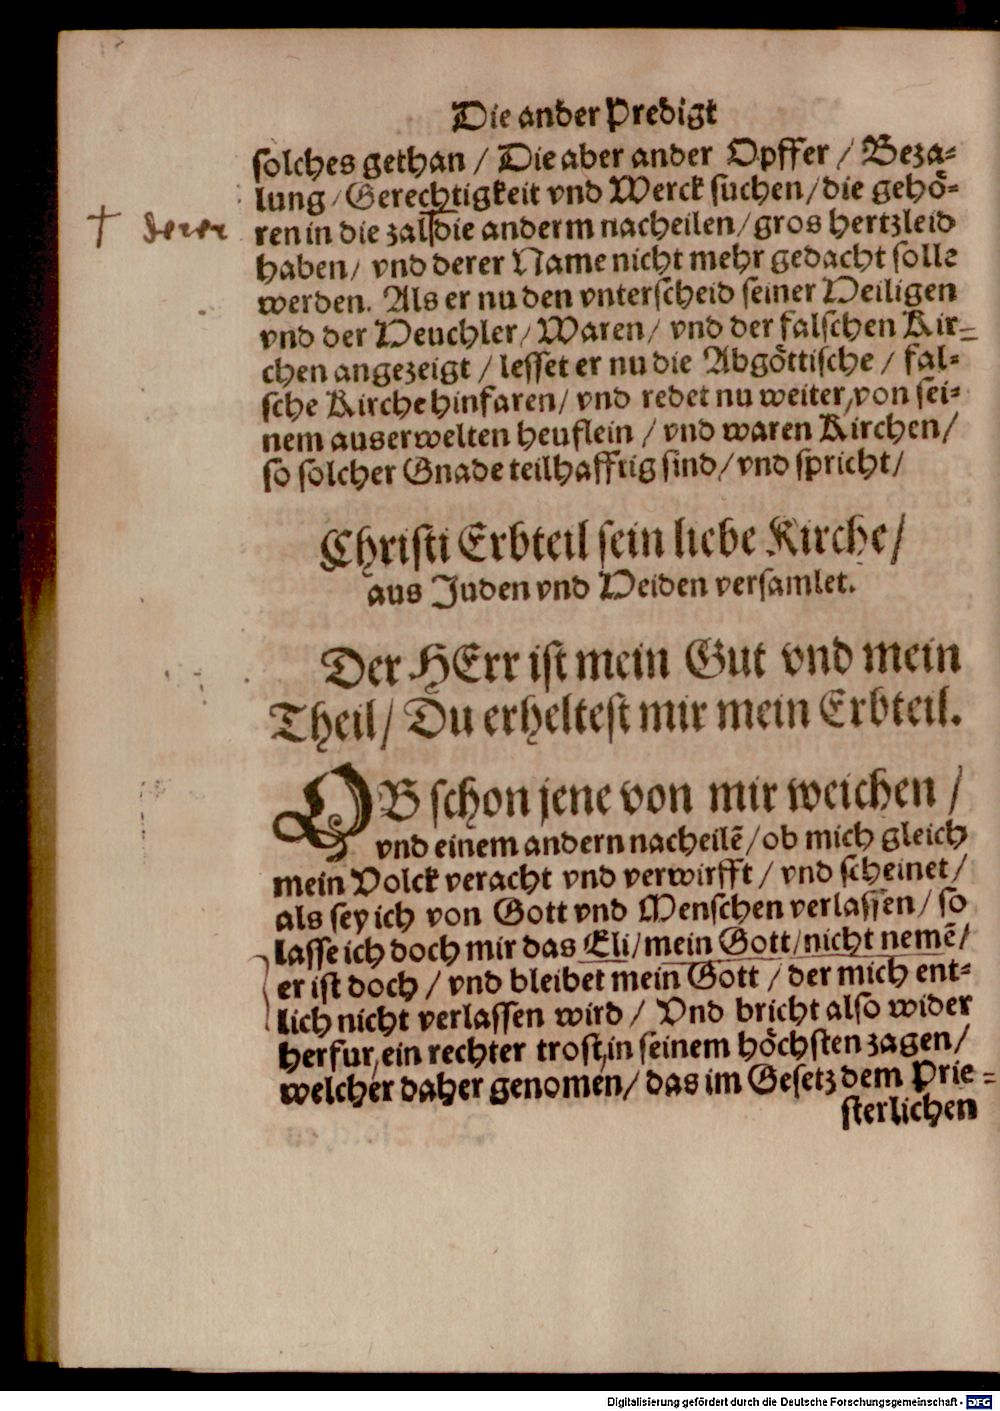 Die ander Predigt
solches gethan / Die aber ander Opffer / Beza-
lung / Gerechtigkeit vnd Werck suchen / die gehö-
† derer
ren in die zal die anderm nacheilen / gros hertzleid
haben / vnd derer Name nicht mehr gedacht solle
werden. Als er nu den vnterscheid seiner Heiligen
vnd der Heuchler / Waren / vnd der falschen Kir-
chen angezeigt / lesset er nu die Abgöttische / fal-
sche Kirche hinfaren / vnd redet nu weiter, von sei-
nem auserwelten heuflein / vnd waren Kirchen /
so solcher Gnade teilhafftig sind / vnd spricht /
Christi Erbteil sein liebe Kirche /
aus Juden vnd Heiden versamlet.
Der HErr ist mein Gut vnd mein
Theil / Du erheltest mir mein Erbteil.
OB schon jene von mir weichen /
vnd einem andern nacheilẽ / ob mich gleich
mein Volck veracht vnd verwirfft / vnd scheinet /
als sey ich von Gott vnd Menschen verlassen / so
lasse ich doch mir das Eli / mein Gott / nicht nemẽ /
er ist doch / vnd bleibet mein Gott / der mich ent-
lich nicht verlassen wird / Vnd bricht also wider
herfur, ein rechter trost, in seinem höchsten zagen /
welcher daher genomen / das im Gesetz dem Prie-
sterlichen
Digitalisierung gefördert durch die Deutsche Forschungsgemeinschaft - DFG